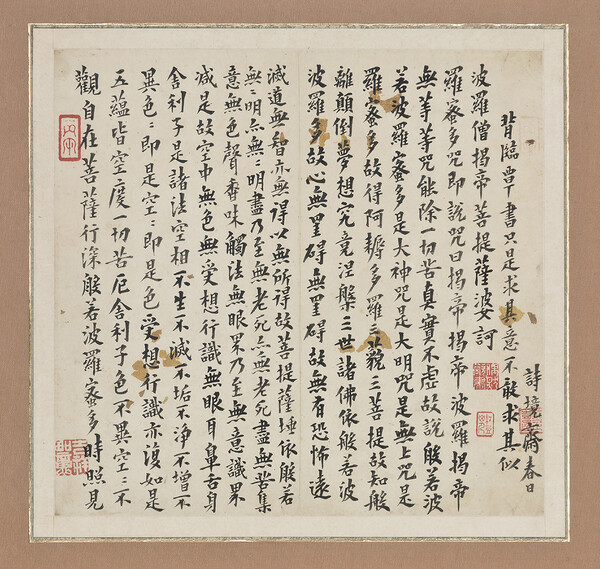 觀自在菩薩行深般若波羅蜜多時照見
五蘊皆空度一切苦厄舍利子色不異空〻不
異色〻即是空〻即是色受想行識亦復如是
舍利子是諸法空相不生不滅不垢不淨不增不
减是故空中無色無受想行識無眼耳鼻舌身
意無色聲香味觸法無眼界乃至無意識界
無〻明亦無〻明盡乃至無老死亦無老死盡無苦集
滅道無智亦無得以無所得故菩提薩埵依般若
波羅多故心無罣碍無罣碍故無有恐怖遠
離顛倒夢想究竟涅槃三世諸佛依般若波
羅蜜多故得阿耨多羅三藐三菩提故知般
若波羅蜜多是大神咒是大明咒是無上咒是
無等等咒能除一切苦真實不虛故說般若波
羅蜜多咒即說咒曰揭帝揭帝波羅揭帝
波羅僧揭帝菩提薩婆訶
背臨草書只是求其意不能求其似
詩境齋春日